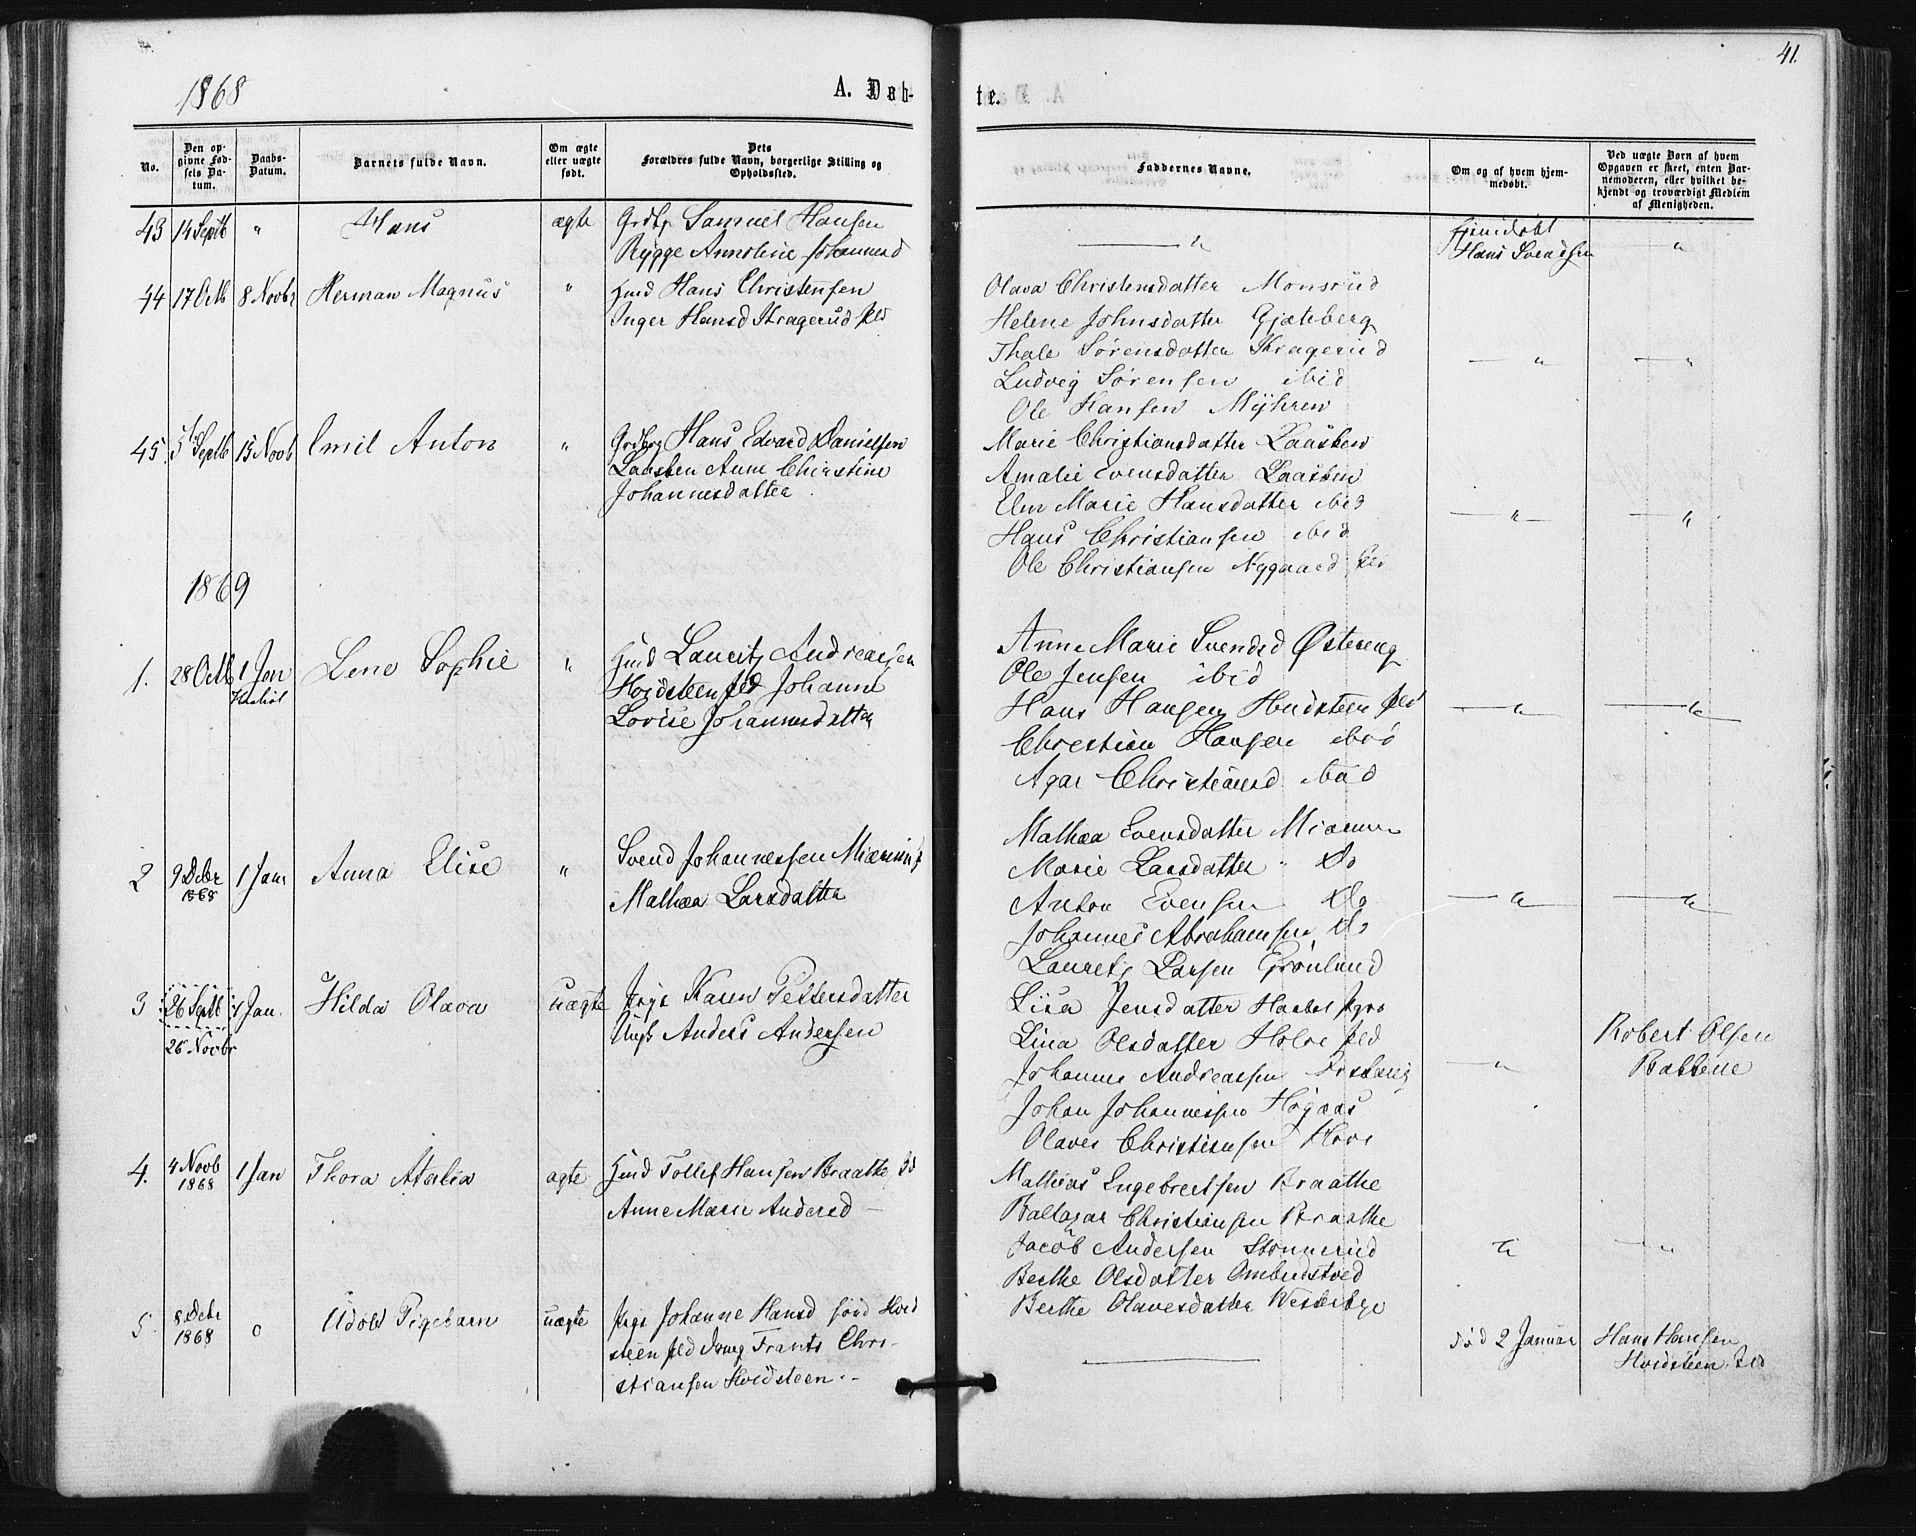 41.
1868
A. Daab-
te.
No.
Den op-
givne Fød-
sels Da-
tum.
Daabs-
Datum.
Barnets fulde Navn.
Om ægte
eller uægte
født.
Dets
Forældres fulde Navn, borgerlige Stilling og
Opholdssted.
Faddernes Navne.
Om og af hvem hjem-
medøbt.
Ved uægte Børn af hvem
Opgaven er skeet, enten Bar-
nemoderen, eller hvilket be-
kjendt og troværdigt Medlem
af Menigheden.
43 14 Septb " Hans ægte Grdbr Samuel Hansen
Rygge Annoline Johannesd
— " Hjemdøbt
Hans Svendsen "
44 17 Octb 8 Novbr Herman Magnus " Hmd Hans Christensen
Inger Hansd Kragerud
Olava Christensdatter Monsrud
Helene Johnsdatter Gjæteberg
Thale Sørensdatter Kragerud — " — "
Ludvig Sørensen ibid
Ole Hansen Myhren
45. 5 Septb 15 Novb Emil Anton " Grdbrg Hans Edvard Danielsen
Laasken Anne Christine
Johannesdatter.
Marie Christiansdatter Laasken
Amalie Evensdatter Laasken
Elen Marie Hansdatter ibid — " — "
Hans Christiansen ibid
Ole Christiansen Nygaard
1869
1. 28 Octb 1 Jan Lene Sophie " Hmd Lauritz Andreassen
Hvidsteen Johanne
Lovise Johannesdatter
Anne Marie Svendsd Østereng
Ole Jensen ibid
Hans Hansen Hvidsteen — " — "
Christian Hansen ibid
Agar Christiansd ibid
2 9 Debr
1868 1 Janr Anna Elise " Svend Johannessen
Mathea Larsdatter
Mathea Evensdatter
Marie Larsdatter Do
Anton Evensen Do — " — "
Johannes Abrahamsen Do
Lauritz Larsen Grønlund
3 26 Septb
26 Novbr 1 Jan. Hilda Olava uægte Pige Karen Pettersdatter
Ungk Anders Andersen
Lisa Jensdatter
Lina Olsdatter
Johannes Andreassen — "
Johan Johannessen Høgaas
Olaves Christiansen
Robert Olsen
4. 4 Novb
1868 1 Jan Thora Atalia ægte Hmd Tollef Hansen Braathe
Anne Marie Andersd —
Mathias Engebretsen Braathe
Baltazar Christiansen Braathe
Jacob Andersen " — "
Berthe Olsdatter Ombudstved
Berthe Olavesdatter Westerbye
5. 8 Debr
1868 o Udøbt Pigebarn uægte Pige Johanne Hansd Hvid
steen Frants Chri-
stiansen Hvidsteen.-
—
død 2 Januar Hans Hansen
Hvidsteen